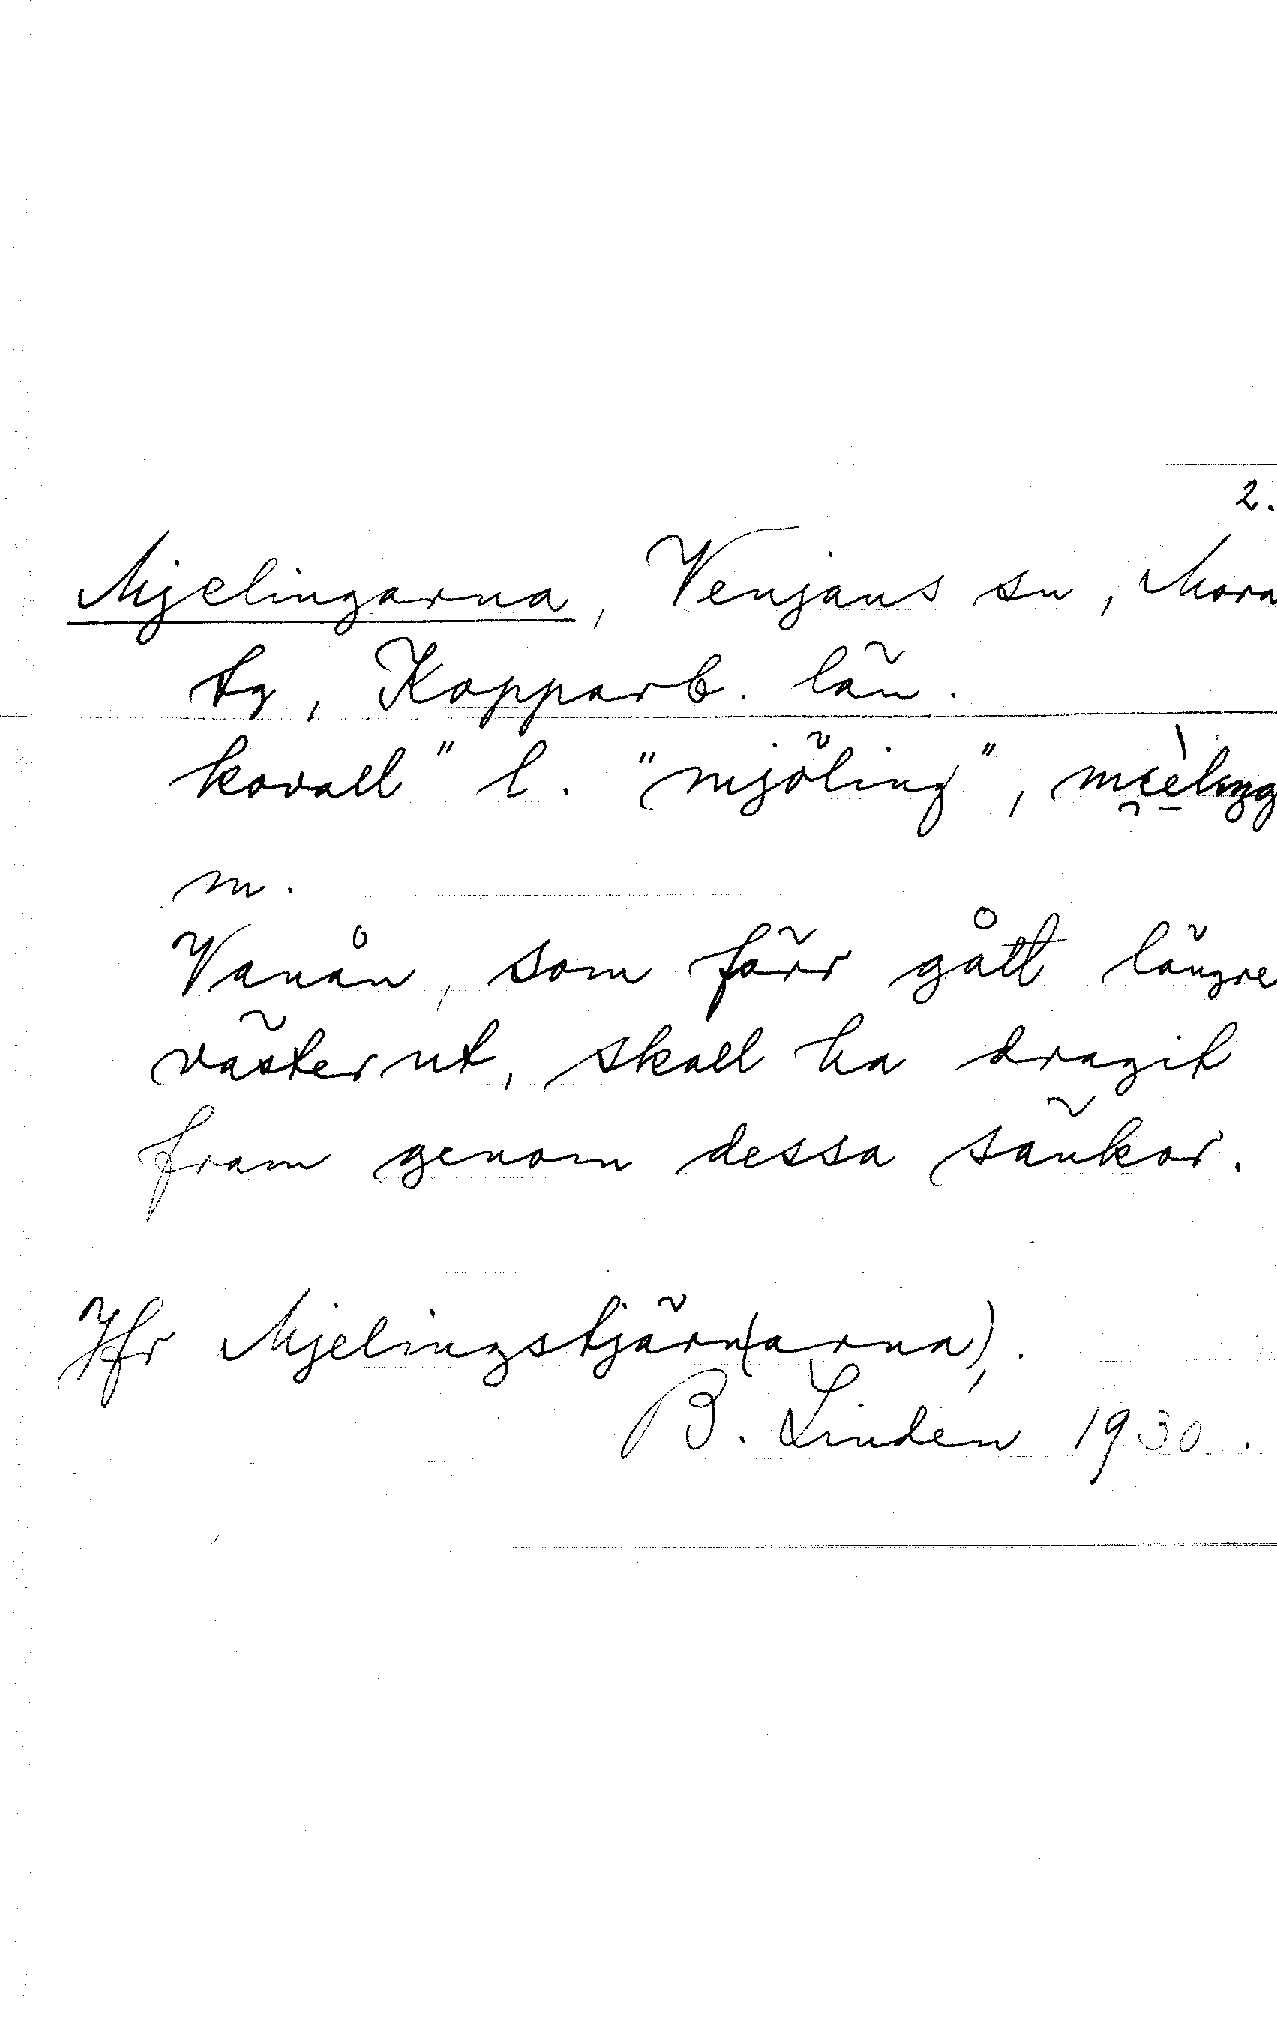 2.
Mjelingarna, Venjans sn, Mora
tg, Kopparb. län.
kovall" l. "mjöling",
m.
Vanån, som förr gått längre
västerut, skall ha dragit
fram genom dessa sänkor.
Jfr Mjelingstjärn(arna).
B. Lindén 1930.